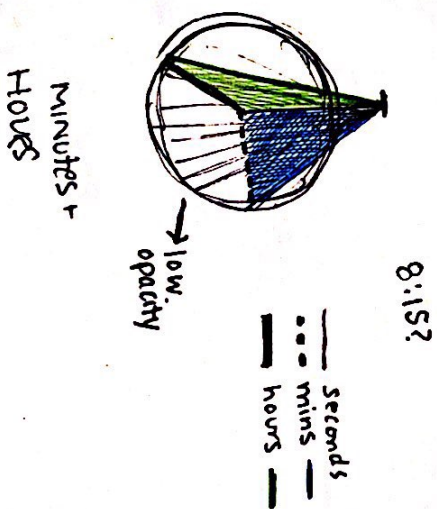 8:15?
seconds
mins
hours
low
opacity
MINUTES +
HOURS